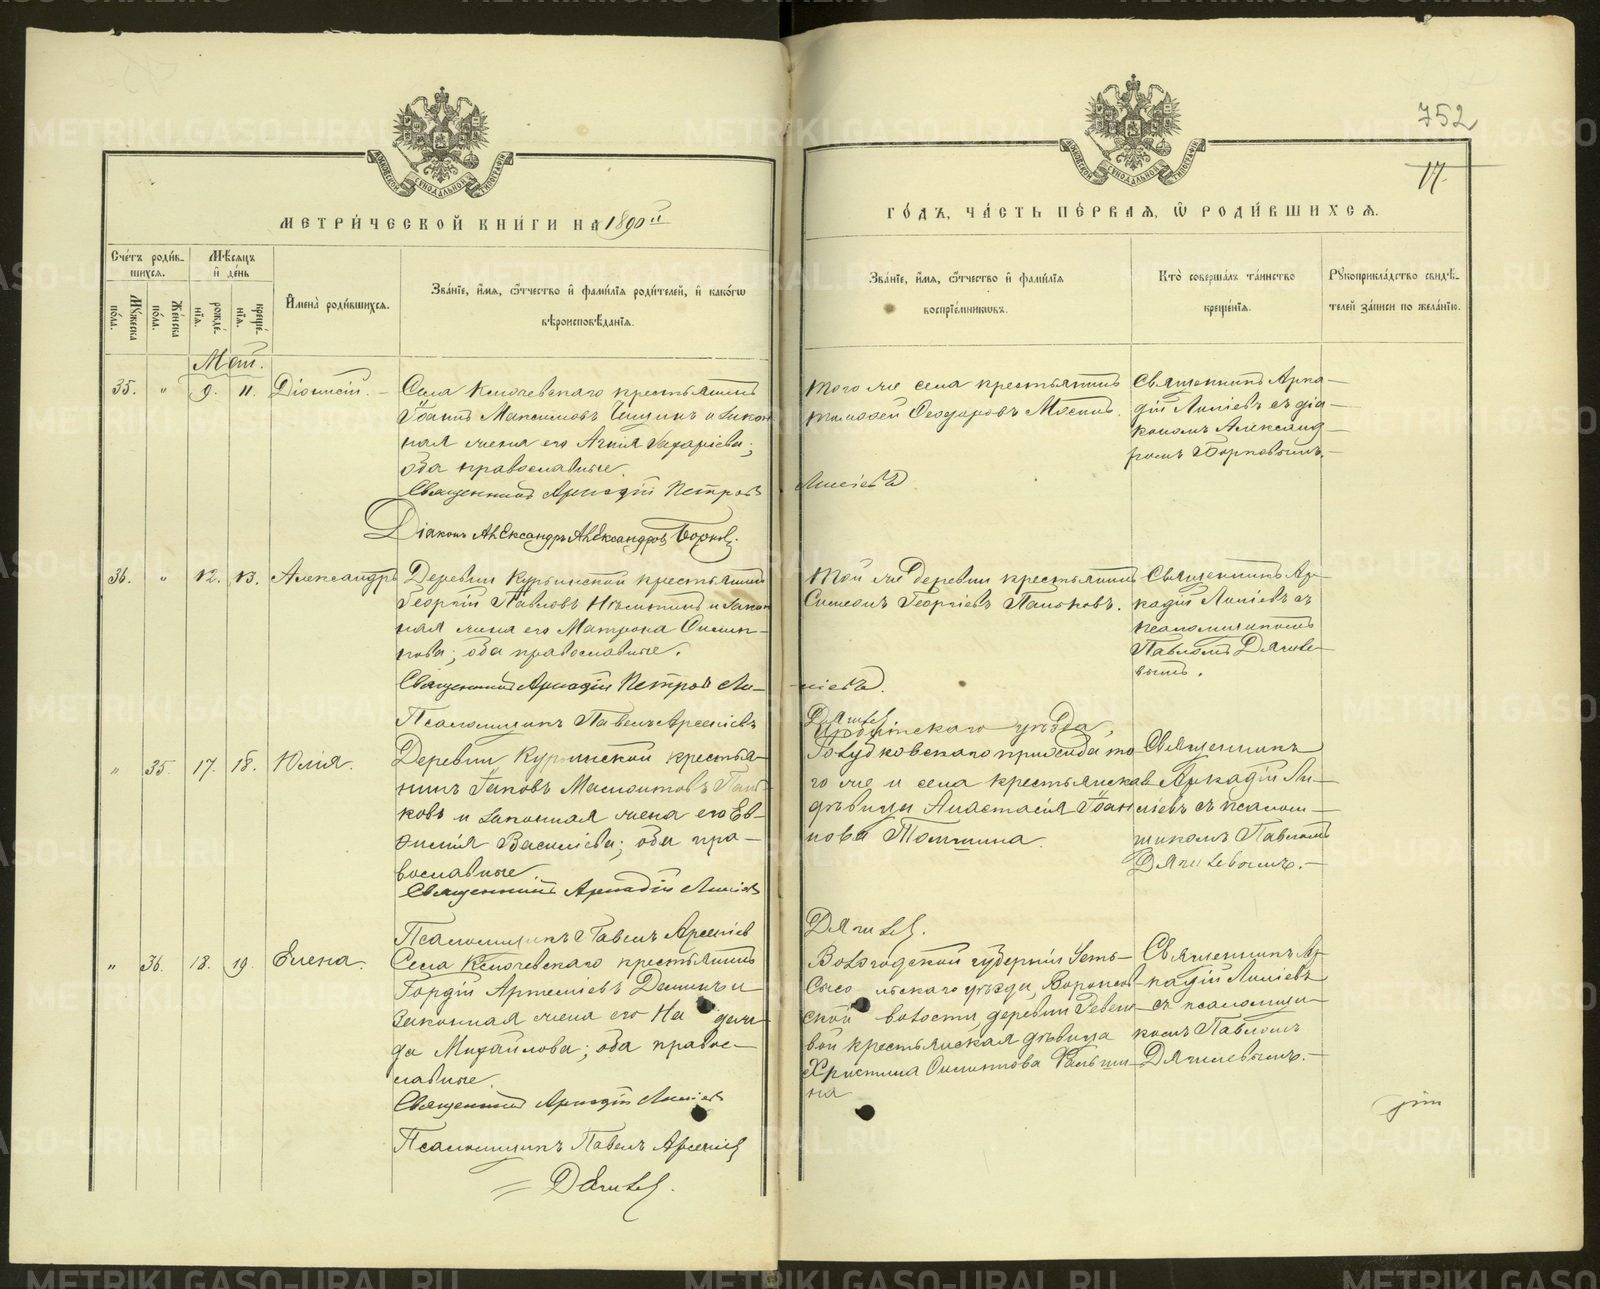 752
17.
МЕТРИ́ЧЕСКОЙ КНИ́ГИ НА 1890й
ГО́ДЪ, ЧА́СТЬ ПЕ́РВАЯ, Ѿ РОДИ́ВШИХСЯ.
Сче́тъ роди́в-
шихся.
Мꙋжеска по́ла.
Же́нска по́ла.
Мѣ́сяцъ
и҆ де́нь
рожде́нїя.
креще́нїя.
И҆мена̀ роди́вшихся.
Зва́нїе, и҆́мя, ѻ҆́тчество и҆ фами́лїя роди́телей, и҆ како́гѡ
вѣроисповѣ́данїя.
Зва́нїе, и҆́мя, ѻ҆́тчество и҆ фами́лїя
воспрїе́мникѡвъ.
Кто̀ соверша́лъ та́инство
креще́нїя.
Рꙋкоприкла́дство свидѣ́-
телей за́писи по жела́нїю.
Май.
35. " 9. 11. Діонисій.
Села Ключевскаго крестьянинъ
Іоаннъ Максимовъ и закон
ная жена его Агнія Захаріева;
оба православные.
Священникъ Аркадій Петровъ
Діаконъ Александръ Александровъ Борковъ.
того же села крестьянинъ
Ѳеодоровъ
Линіевъ
Священникъ Арка-
дій Линіевъ съ діа-
кономъ Александ-
ромъ Борковымъ.
36. " 12. 13. Александръ
Деревни Курьинской крестьянинъ
Георгій Павловъ и закон
ная жена его Матрона Филип-
пова; оба православные.
Священникъ Аркадій Петровъ Ли-
Псаломщикъ Павелъ Арсеніевъ
той же деревни крестьянинъ
Симеонъ Георгіевъ Паньковъ.
ніевъ.
Дягилев
Священникъ Ар-
кадій Линіевъ съ
псаломщикомъ
Павломъ Дягиле-
вымъ.
" 35. 17. 18. Юлія.
Деревни Курьинской крестья-
нинъ Іаковъ Паньк
ковъ и законная жена его Ев-
фимія Васильева; оба пра-
вославные.
Священникъ Аркадій Линіевъ
Псаломщикъ Павелъ Арсеніев
Ирбитскаго уѣзда,
Голубковскаго прихода то
го же и села крестьянская
дѣвица Анастасія Іоан
нова Томшина.
Дягилев.
Священникъ
Аркадій Ли-
ніевъ съ псалом-
щикомъ Павломъ
Дягилевымъ.
" 36. 18. 19. Елена.
Села Ключевскаго крестьянинъ
Гордій Артеміевъ Деминъ и
законная жена его На деж-
да Михайлова; оба право-
славные.
Священникъ Аркадій Линіевъ
Псаломщикъ Павелъ Арсеніев
Дягилев.
Вологодской губерніи Усть-
Сысо льскаго уѣзда,
ской волости деревни
вой крестьянская дѣвица
Христина Филиппова
на
Священникъ Ар-
кадій Линіевъ
съ псаломщи-
комъ Павломъ
Дягилевымъ.